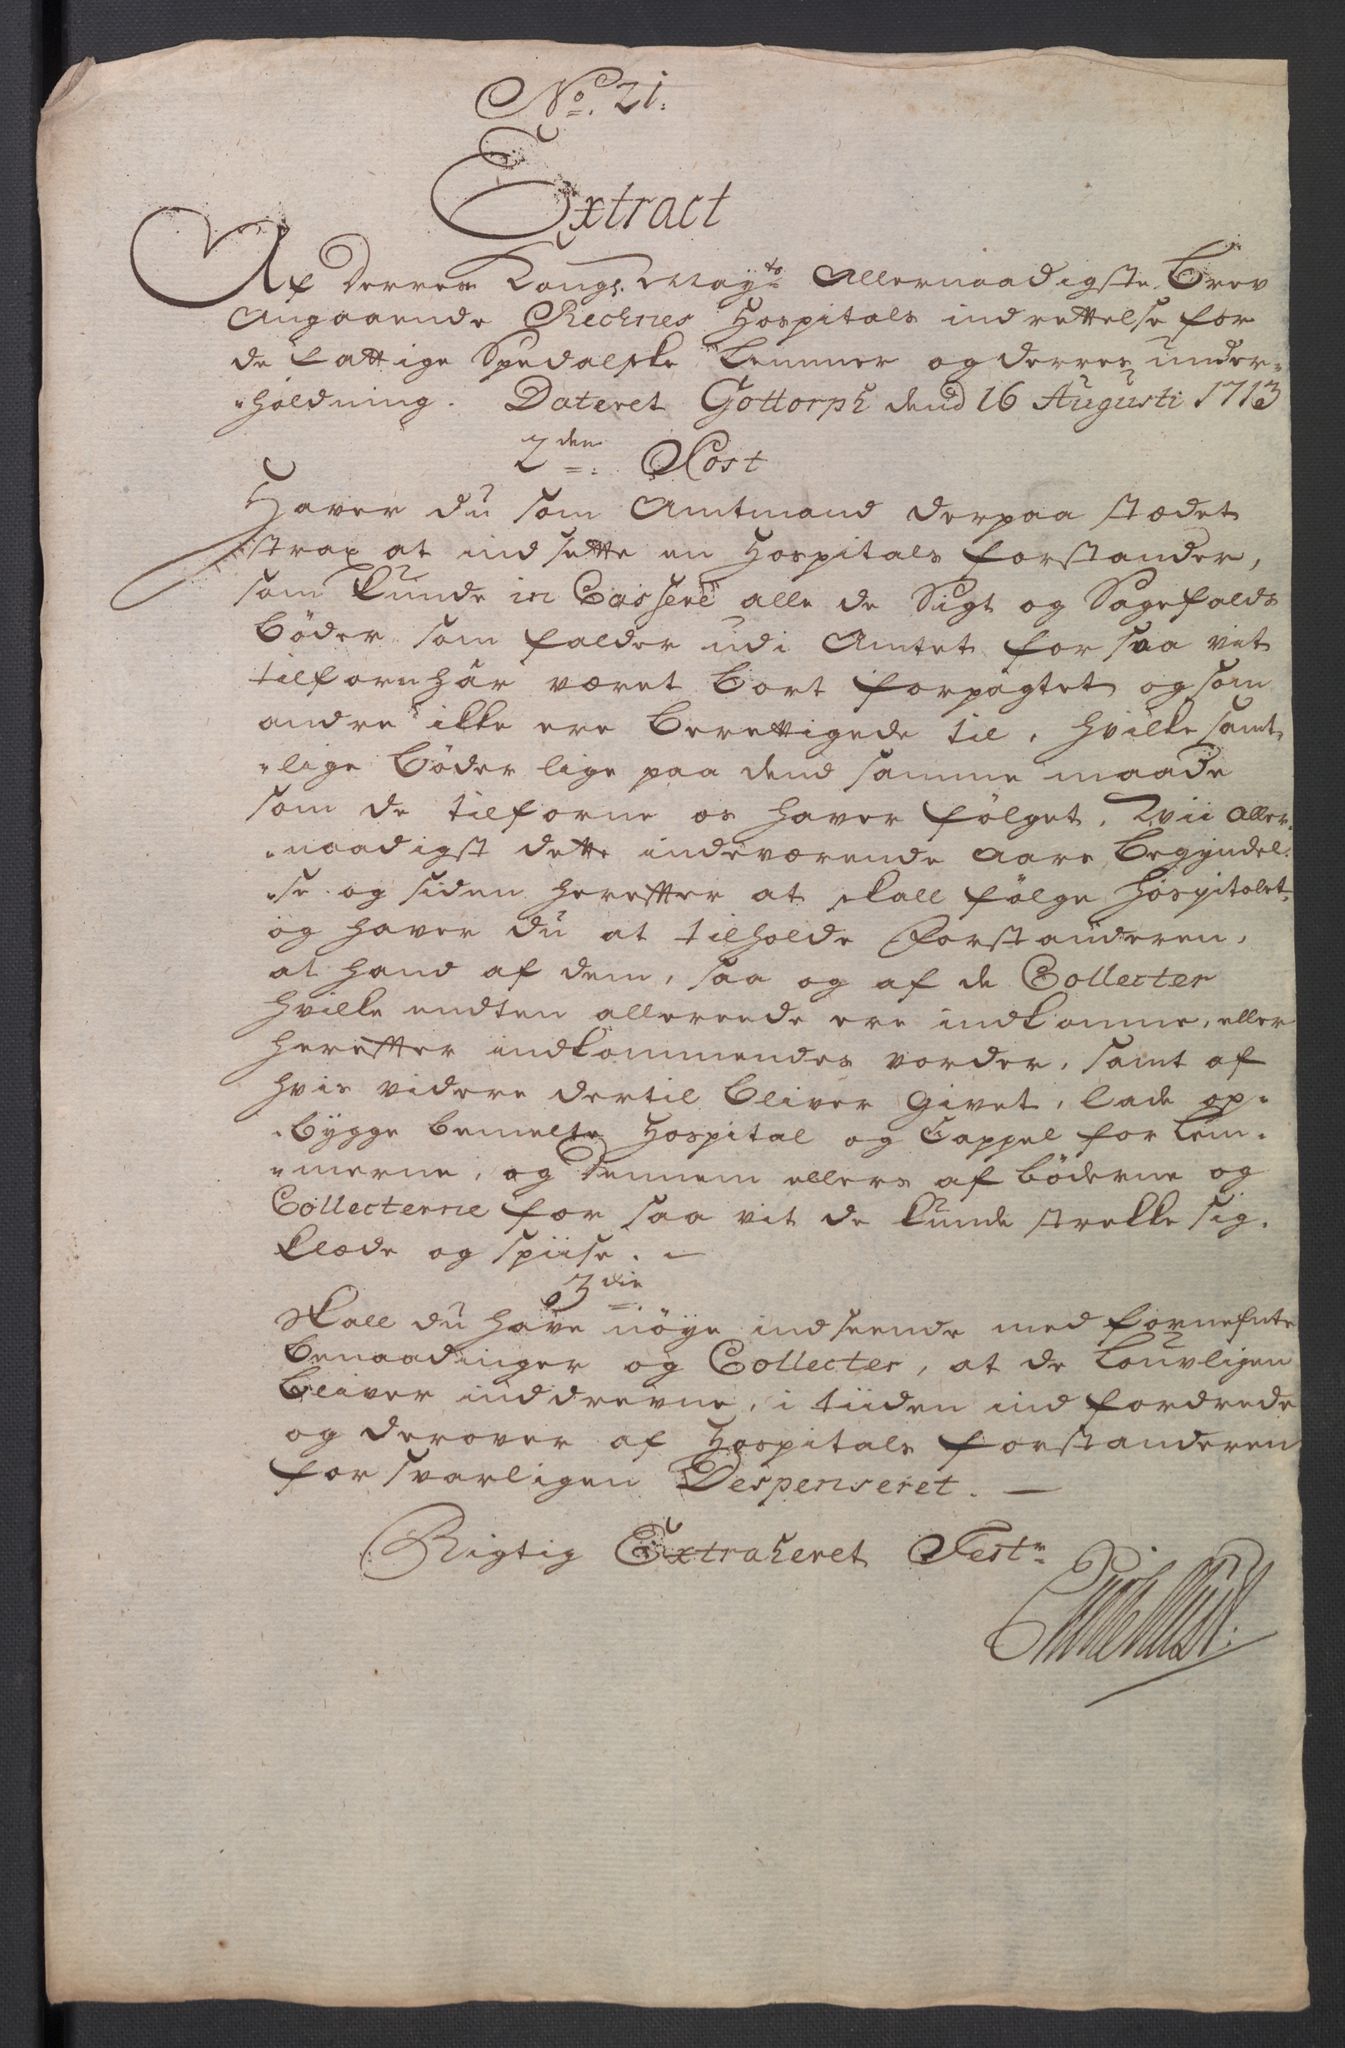 No. 21.
Extract
Af Derres Kongl. Mayts Allernaadigste Brev
Angaaende Recknes Hospitals indrettelse for
de fattige Spedalske Lemmer og derres under-
holdning. Dateret Gottorph dend 16 Augusti 1713
2den Post
Haver du som Amtmand derpaa stædet
strax at indsætte en Hospitals forstander,
som kunde in Cassere alle de Sigt og Sagefalds
Bøder som falder udi Amtet for saa vit
tilforn har været bort forpagtet og som
andre ikke ere berettigede til, hvilke samt-
lige Bøder lige paa dend samme maade
som de tilforne os haver følget, Wii aller-
naadigst dette indeværende Aars begyndel-
se og siden herefter at skall følge Hospitalet
og haver du at tilholde forstanderen,
at hand af dem, saa og af de Collecter
hvilke endten allereede ere indkomne, eller
herefter indkommendes vorder, samt af
hvis videre dertil bliver givet, lade op-
bygge bemelte Hospital og Cappel for Lem-
merne, og Dennem ellers af bøderne og
Collecterne for saa vit de kunde strekke sig,
klæde og spiise. —
3die
Skall du have nøye indseende med fornefnte
benaadinger og Collecter, at de Louvligen
bliver inddrevne, i tiiden ind fordrede
og derover af Hospitals forstanderen
forsvarligen Despenseret. —
Rigtig Extraheret Testr